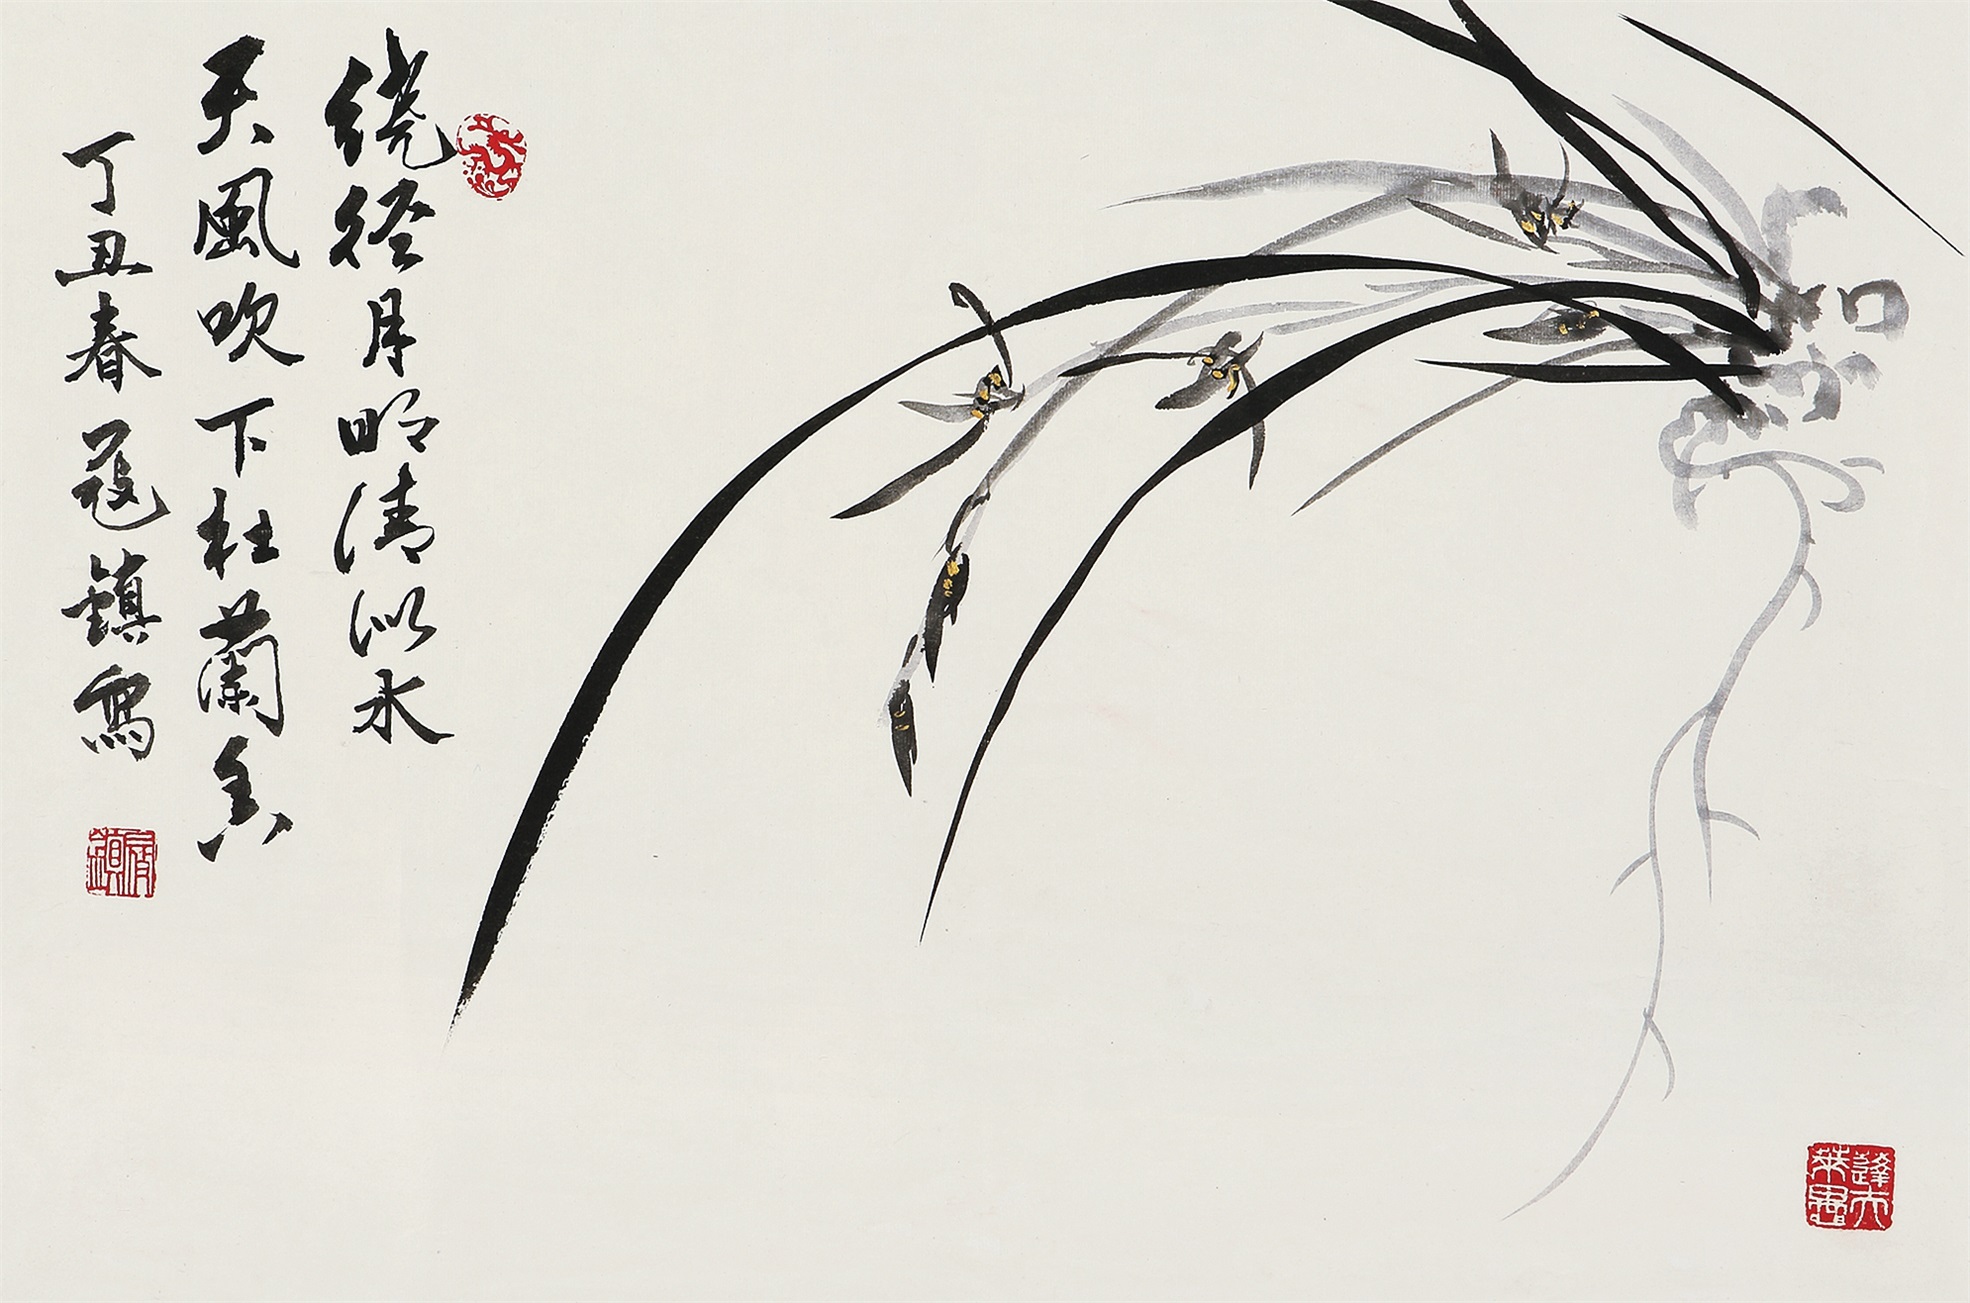 绕径月明清似水
天風吹下杜蘭香
丁丑春寇鎮寫